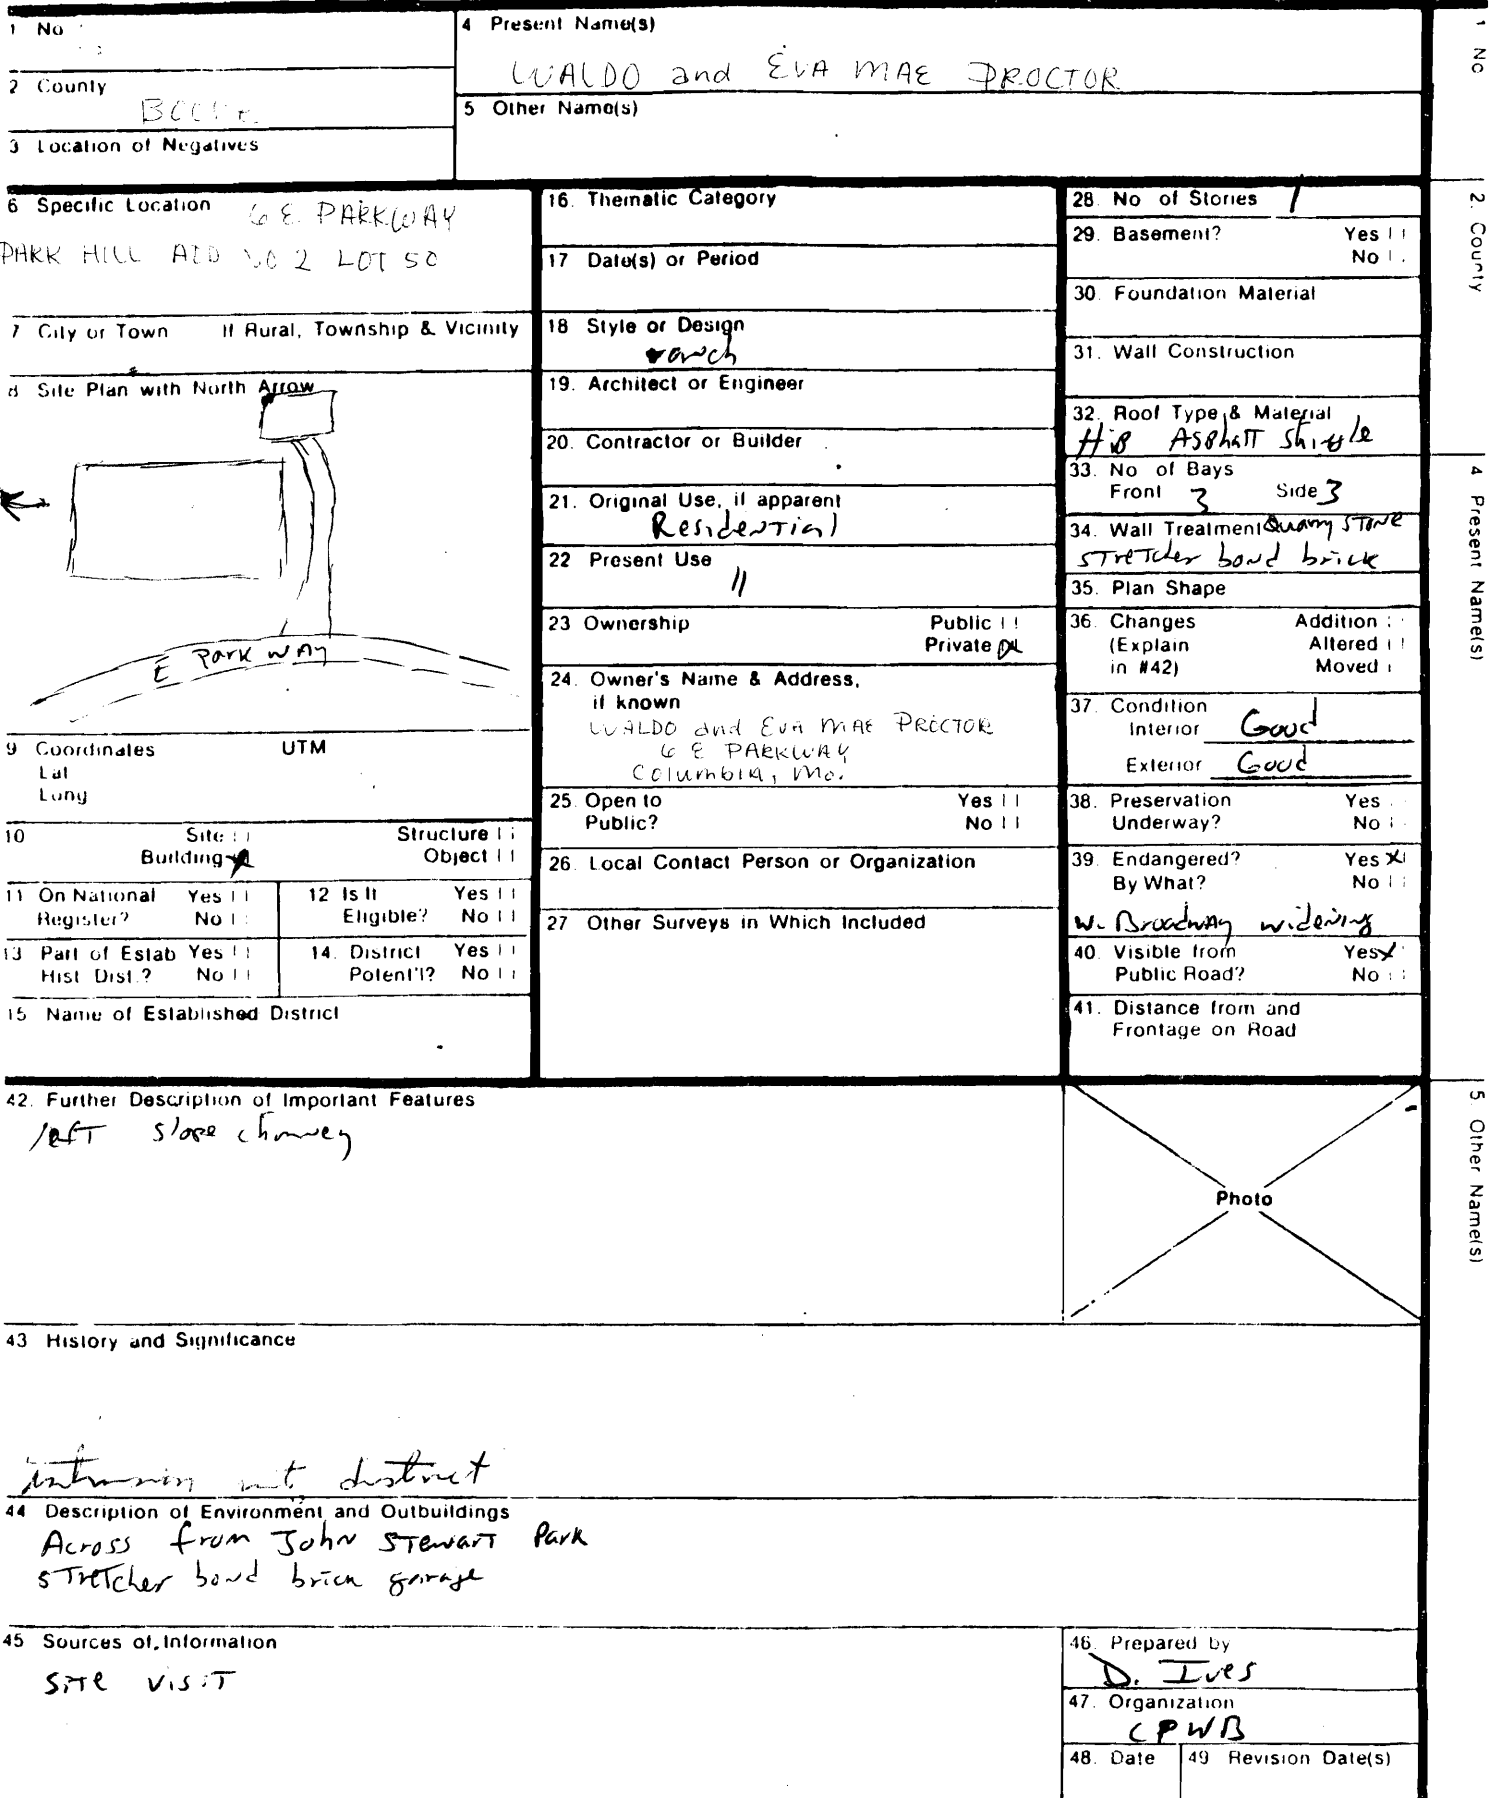 1 No
4 Present Name(s)
WALDO and EVA MAE PROCTOR
2 County
BOONE
5 Other Name(s)
3 Location of Negatives
6 Specific Location 6 E. PARKWAY
PARK HILL ADD NO 2 LOT 50
7 City or Town If Rural, Township & Vicinity
8 Site Plan with North Arrow
E PARKWAY
9 Coordinates UTM
Lat
Long
10 Site Structure
Building Object
11 On National Register? Yes No
12 Is It Eligible? Yes No
13 Part of Estab Hist Dist.? Yes No
14. District Potent'l? Yes No
15 Name of Established District
16. Thematic Category
17 Date(s) or Period
18 Style or Design
ranch
19. Architect or Engineer
20. Contractor or Builder
21. Original Use, if apparent
Residential
22 Present Use
"
23 Ownership Public
Private
24. Owner's Name & Address,
if known
WALDO and EVA MAE PROCTOR
6 E PARKWAY
Columbia, Mo.
25. Open to Yes
Public? No
26. Local Contact Person or Organization
27 Other Surveys in Which Included
28. No of Stories 1
29. Basement? Yes
No
30. Foundation Material
31. Wall Construction
32. Roof Type & Material
Hip Asphalt Shingle
33. No of Bays
Front 3 Side 3
34. Wall Treatment Quarry STONE
STretcher bond brick
35. Plan Shape
36. Changes Addition
(Explain Altered
in #42) Moved
37. Condition
Interior Good
Exterior Good
38. Preservation Yes
Underway? No
39. Endangered? Yes X
By What? No
W. Broadway widening
40. Visible from Yes X
Public Road? No
41. Distance from and
Frontage on Road
42. Further Description of Important Features
left slope chimney
Photo
43 History and Significance
intrusion not district
44 Description of Environment and Outbuildings
Across from John Stewart Park
STretcher bond brick garage
45 Sources of Information
Site visit
46. Prepared by
D. Ives
47. Organization
CPWB
48. Date 49 Revision Date(s)
1 No
2. County
4 Present Name(s)
5 Other Name(s)